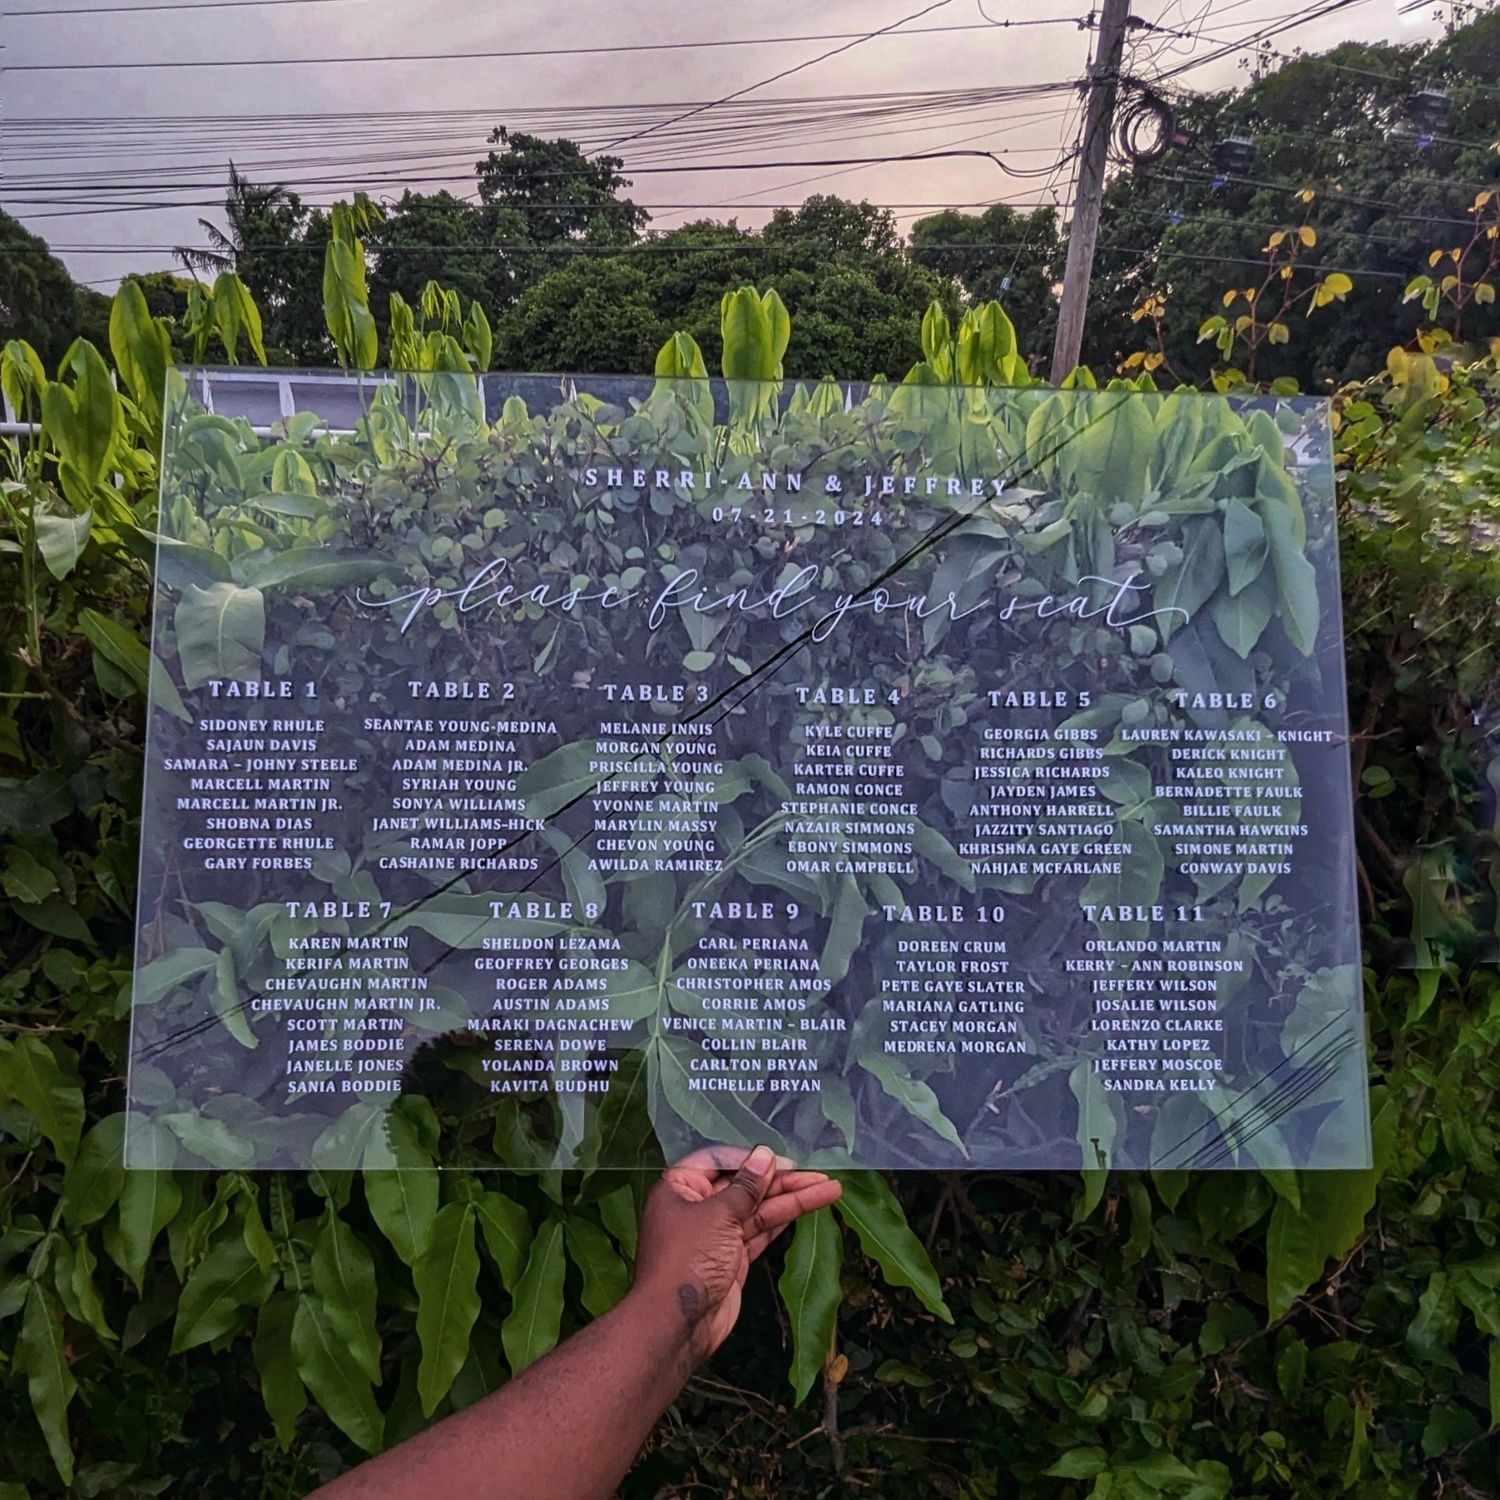 SHERRI-ANN & JEFFREY
07-21-2024
please find your seat
TABLE 1
SIDONEY RHULE
SAJAUN DAVIS
SAMARA – JOHNY STEELE
MARCELL MARTIN
MARCELL MARTIN JR.
SHOBNA DIAS
GEORGETTE RHULE
GARY FORBES
TABLE 2
SEANTAE YOUNG-MEDINA
ADAM MEDINA
ADAM MEDINA JR.
SYRIAH YOUNG
SONYA WILLIAMS
JANET WILLIAMS-HICK
RAMAR JOPP
CASHAINE RICHARDS
TABLE 3
MELANIE INNIS
MORGAN YOUNG
PRISCILLA YOUNG
JEFFREY YOUNG
YVONNE MARTIN
MARYLIN MASSY
CHEVON YOUNG
AWILDA RAMIREZ
TABLE 4
KYLE CUFFE
KEIA CUFFE
KARTER CUFFE
RAMON CONCE
STEPHANIE CONCE
NAZAIR SIMMONS
EBONY SIMMONS
OMAR CAMPBELL
TABLE 5
GEORGIA GIBBS
RICHARDS GIBBS
JESSICA RICHARDS
JAYDEN JAMES
ANTHONY HARRELL
JAZZITY SANTIAGO
KHRISHNA GAYE GREEN
NAHJAE MCFARLANE
TABLE 6
LAUREN KAWASAKI – KNIGHT
DERICK KNIGHT
KALEO KNIGHT
BERNADETTE FAULK
BILLIE FAULK
SAMANTHA HAWKINS
SIMONE MARTIN
CONWAY DAVIS
TABLE 7
KAREN MARTIN
KERIFA MARTIN
CHEVAUGHN MARTIN
CHEVAUGHN MARTIN JR.
SCOTT MARTIN
JAMES BODDIE
JANELLE JONES
SANIA BODDIE
TABLE 8
SHELDON LEZAMA
GEOFFREY GEORGES
ROGER ADAMS
AUSTIN ADAMS
MARAKI DAGNACHEW
SERENA DOWE
YOLANDA BROWN
KAVITA BUDHU
TABLE 9
CARL PERIANA
ONEEKA PERIANA
CHRISTOPHER AMOS
CORRIE AMOS
VENICE MARTIN – BLAIR
COLLIN BLAIR
CARLTON BRYAN
MICHELLE BRYAN
TABLE 10
DOREEN CRUM
TAYLOR FROST
PETE GAYE SLATER
MARIANA GATLING
STACEY MORGAN
MEDRENA MORGAN
TABLE 11
ORLANDO MARTIN
KERRY – ANN ROBINSON
JEFFERY WILSON
JOSALIE WILSON
LORENZO CLARKE
KATHY LOPEZ
JEFFERY MOSCOE
SANDRA KELLY